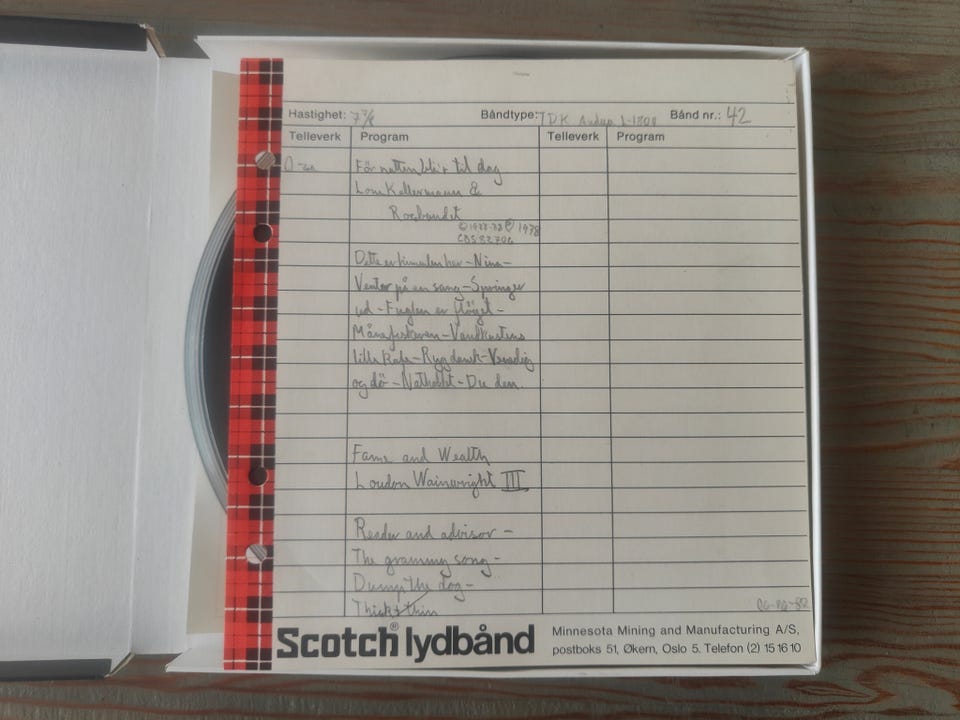 Hastighet: 7½ Båndtype: TDK Audua L-1800 Bånd nr.: 42
Telleverk Program Telleverk Program
För natten bli'r til dag
Lone Kellermann &
Rockbandet
1978
CBS 82706
Dette er himmelen her - Nina -
Venter på en sang - Springer
ud - Fuglen er flöjet -
Månefiskeren - Vandkantens
lille Kafe - Ryg dank - Venedig
og dö - Natkold - Du den
Fame and Wealth
Loudon Wainwright III
Reader and advisor -
The grammy song -
Dump the dog -
Thick & thin
Scotch® lydbånd
Minnesota Mining and Manufacturing A/S,
postboks 51, Økern, Oslo 5. Telefon (2) 15 16 10